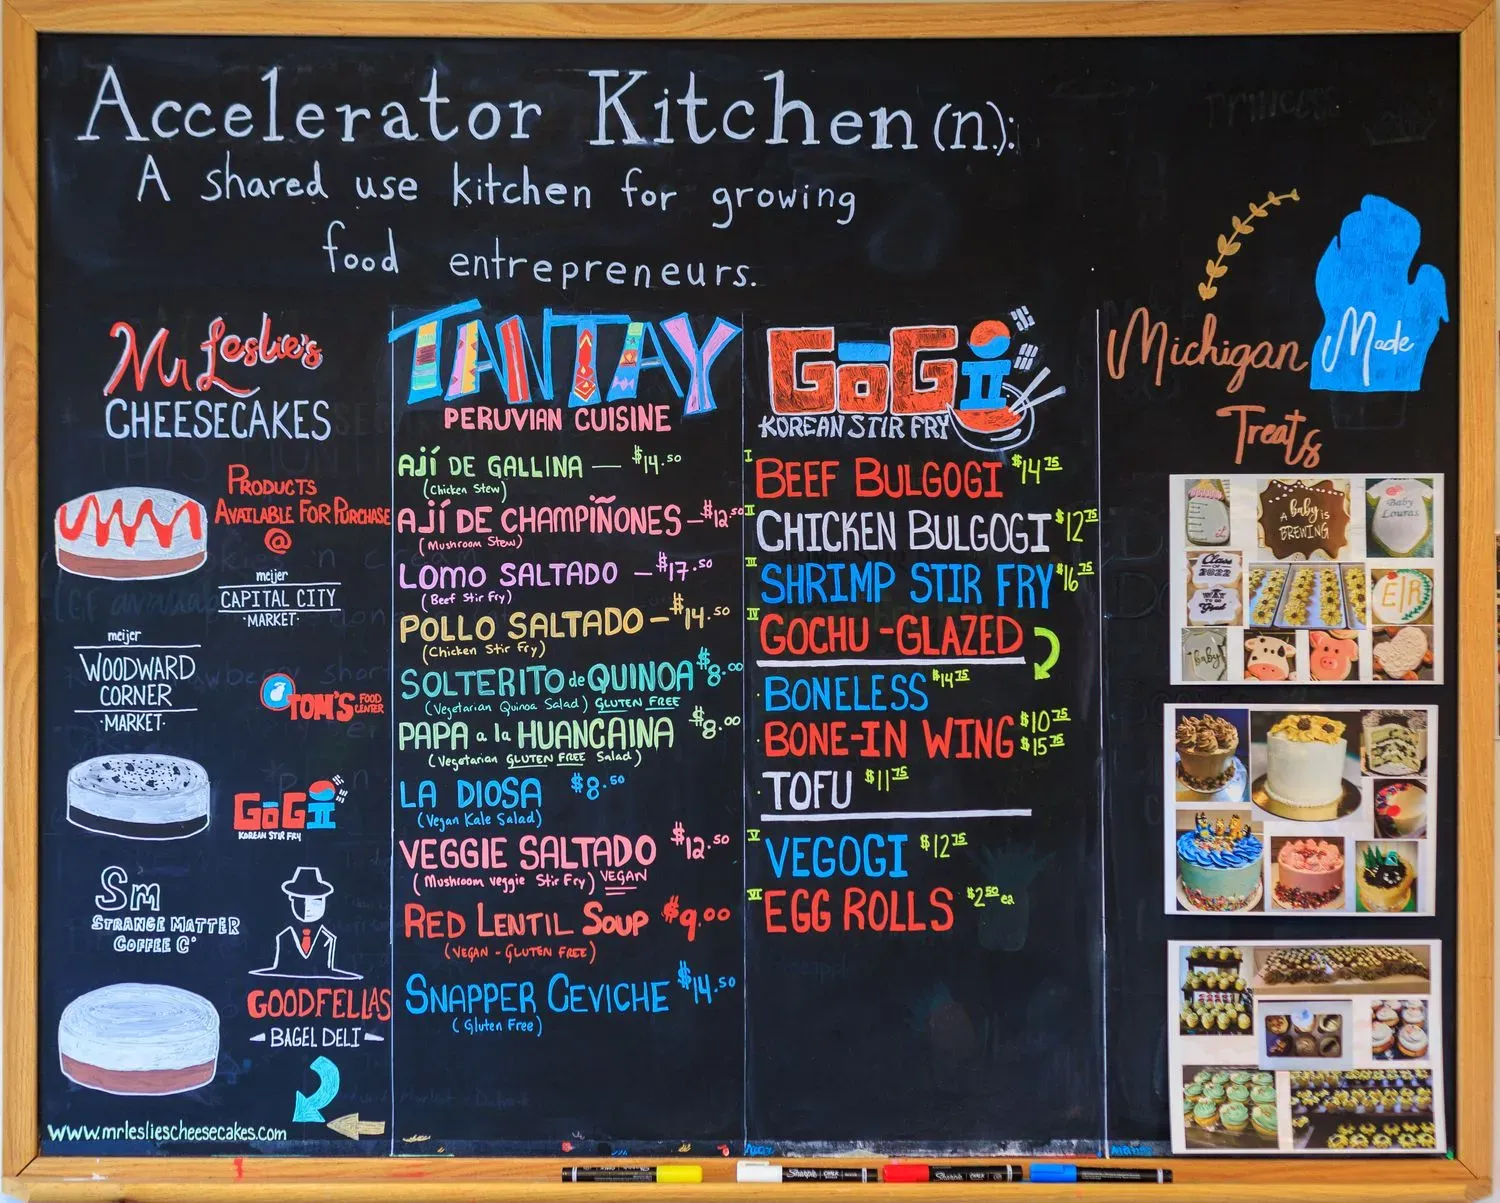 Accelerator Kitchen (n.):
A shared use kitchen for growing
food entrepreneurs.
Mr Leslie's
CHEESECAKES
PRODUCTS
AVAILABLE FOR PURCHASE
@
meijer
CAPITAL CITY
·MARKET·
meijer
WOODWARD
CORNER
·MARKET·
TOM'S FOOD
CENTER
GōGi
KOREAN STIR FRY
Sm
STRANGE MATTER
COFFEE Cº
GOODFELLAS
BAGEL DELI
www.mrlesliescheesecakes.com
TANTAY
PERUVIAN CUISINE
AJÍ DE GALLINA — $14.50
(Chicken Stew)
AJÍ DE CHAMPIÑONES — $12.50
(Mushroom Stew)
LOMO SALTADO — $17.50
(Beef Stir Fry)
POLLO SALTADO — $14.50
(Chicken Stir Fry)
SOLTERITO de QUINOA $8.00
(Vegetarian Quinoa Salad) GLUTEN FREE
PAPA a la HUANCAINA $8.00
(Vegetarian GLUTEN FREE Salad)
LA DIOSA $8.50
(Vegan Kale Salad)
VEGGIE SALTADO $12.50
(Mushroom veggie Stir Fry) VEGAN
RED LENTIL SOUP $9.00
(VEGAN - GLUTEN FREE)
SNAPPER CEVICHE $14.50
(Gluten Free)
GōGi
KOREAN STIR FRY
I BEEF BULGOGI $14.75
II CHICKEN BULGOGI $12.75
III SHRIMP STIR FRY $16.75
IV GOCHU-GLAZED
· BONELESS $14.75
· BONE-IN WING $10.75
$15.75
· TOFU $11.75
V VEGOGI $12.75
VI EGG ROLLS $2.50 ea
Michigan Made
Treats
A baby is
BREWING
Baby
Louras
Class
OF
2022
E|R
baby
Sharpie
Sharpie